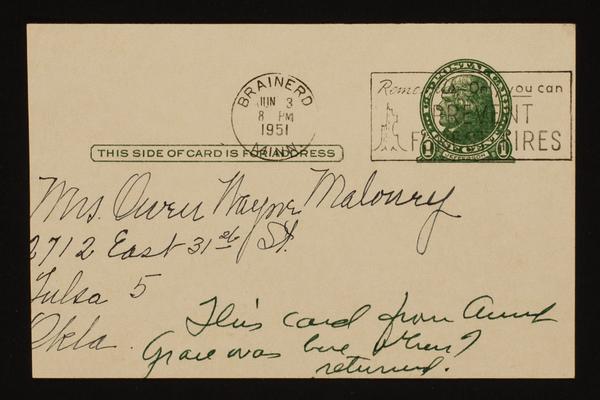 BRAINERD
JUN 3
8 PM
1951
MINN.
Remember - Only you can
PREVENT
FOREST FIRES
U.S. POSTAL CARD
1 JEFFERSON 1
THIS SIDE OF CARD IS FOR ADDRESS
Mrs. Owen Wayne Maloney
2712 East 31st St.
Tulsa 5
Okla.
This card from Aunt
Grace was here when I
returned.